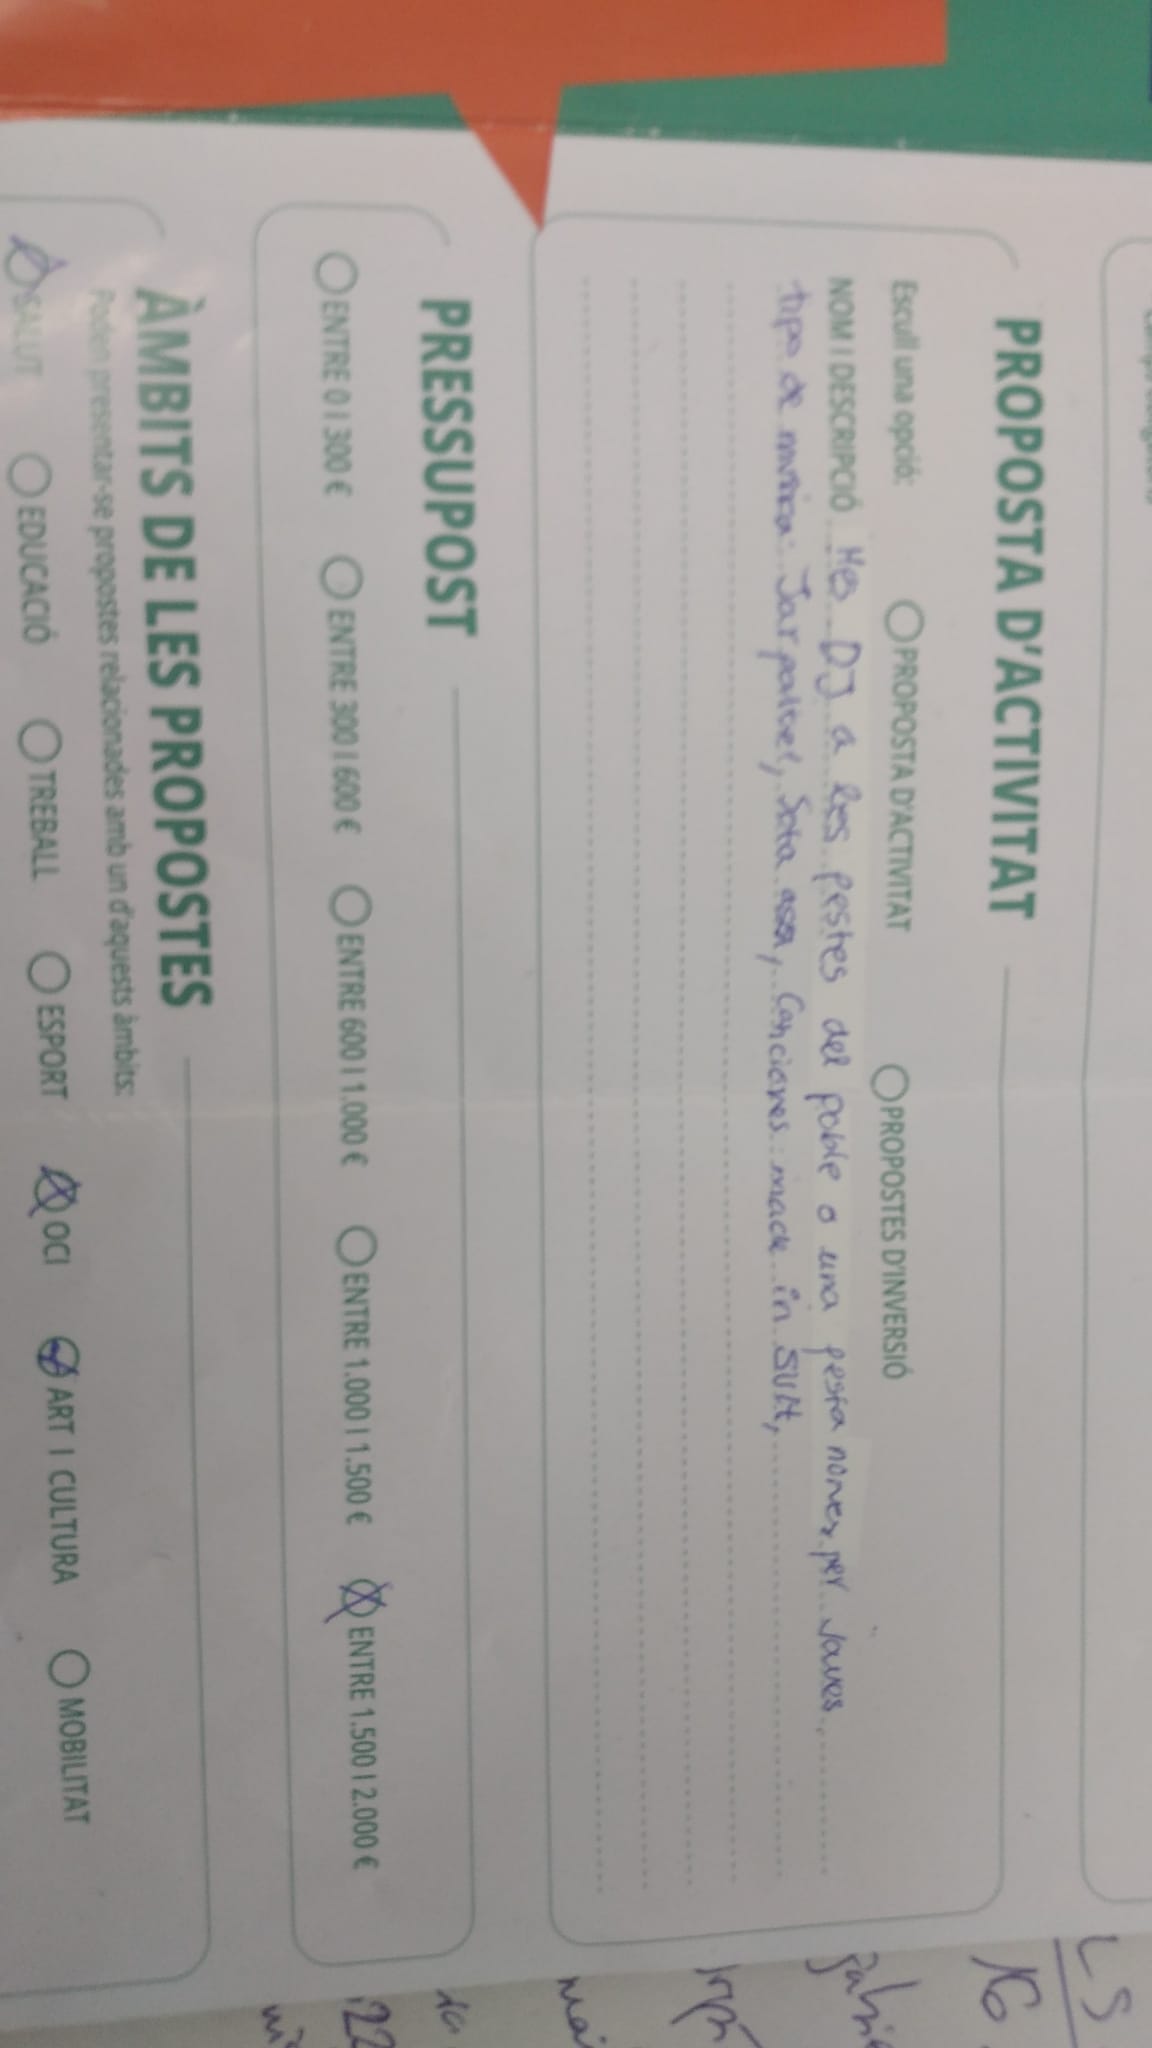 PROPOSTA D'ACTIVITAT
Escull una opció: PROPOSTA D'ACTIVITAT PROPOSTES D'INVERSIÓ
NOM I DESCRIPCIÓ Més DJ a les festes del poble o una festa només per Joves
tipo de música: Jarpaltel, Sota assa, Canciones made in SUH,
PRESSUPOST
ENTRE 0 I 300 € ENTRE 300 I 600 € ENTRE 600 I 1.000 € ENTRE 1.000 I 1.500 € ENTRE 1.500 I 2.000 €
ÀMBITS DE LES PROPOSTES
Poden presentar-se propostes relacionades amb un d'aquests àmbits:
SALUT EDUCACIÓ TREBALL ESPORT OCI ART I CULTURA MOBILITAT
LS
16